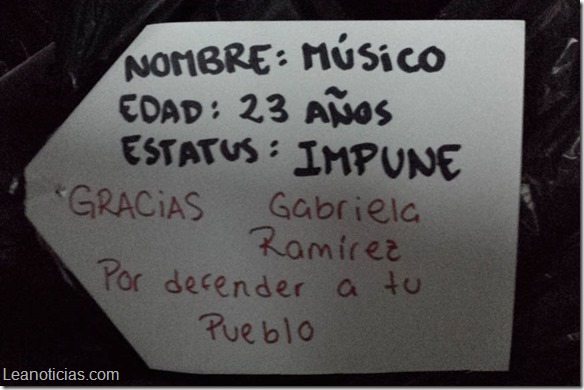 NOMBRE: MÚSICO
EDAD: 23 AÑOS
ESTATUS: IMPUNE
GRACIAS Gabriela
Ramírez
Por defender a tu
Pueblo
Leanoticias.com